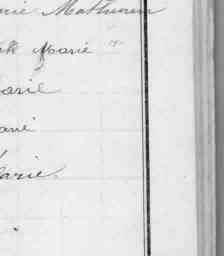 arie Mathurin
Marie
arie
arie
arie